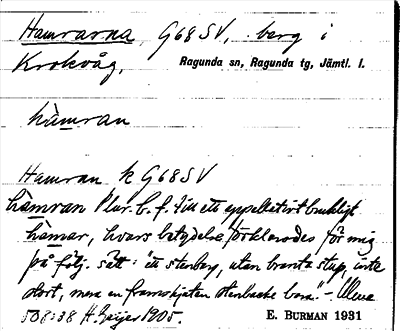 Hamrarna, G68SV, berg i
Krokvåg, Ragunda sn, Ragunda tg, Jämtl. l.
hàmran
Hamran k G68SV
hàmran Plur. b. f. till ett appellativt brukligt
hàmar, hvars betydelse förklarades för mig
på följ. sätt: "ett stenberg, utan branta stup, inte
stort, men en framskjuten stenbacke bara" –
508:38 H. Geijer 1905. E. BURMAN 1931